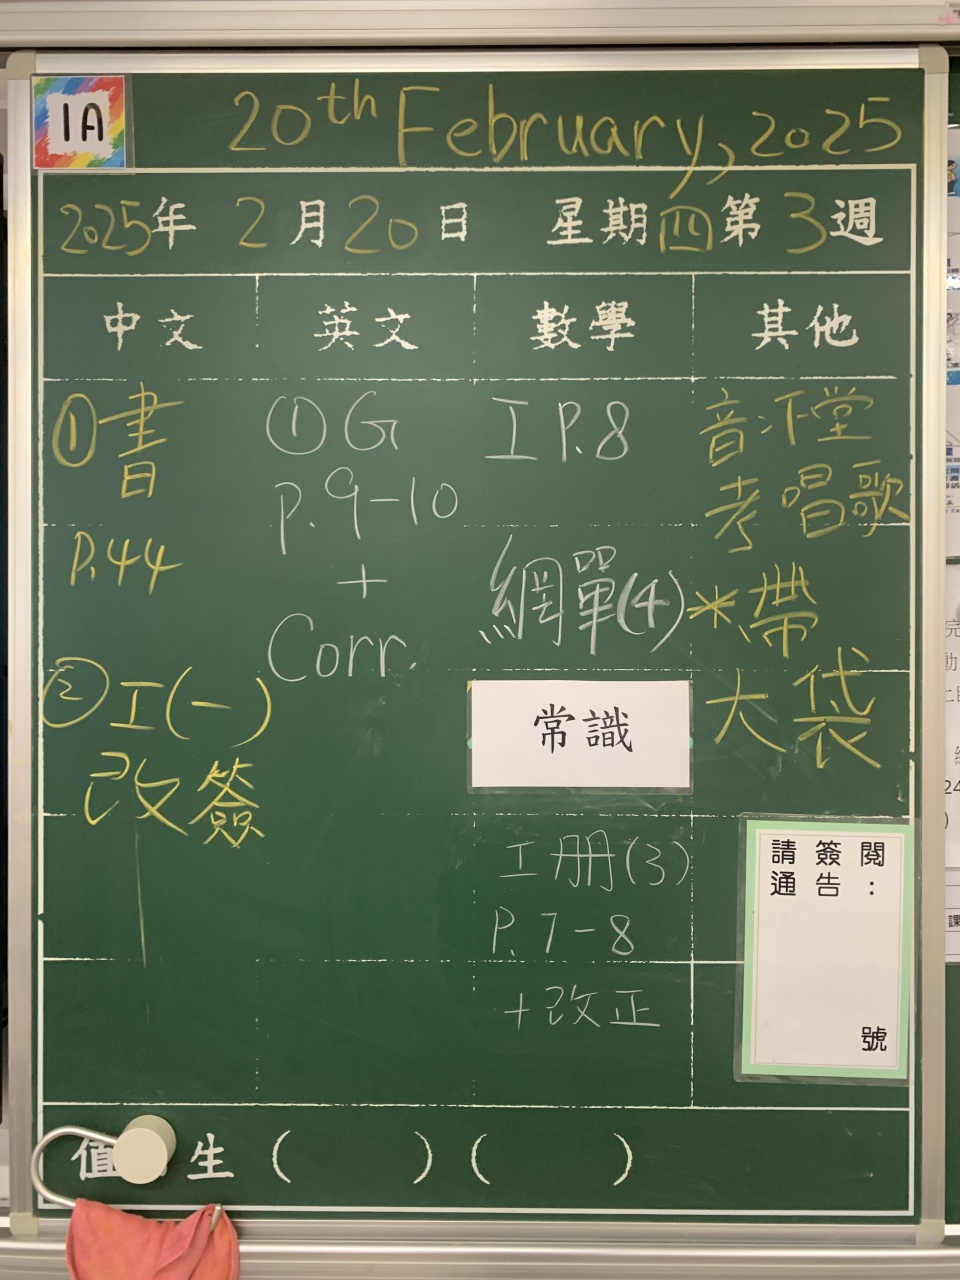 1A
20th February, 2025
2025年 2月20日 星期四 第3週
中文 英文 數學 其他
①書
P.44
②工(一)
改簽
①G
P.9-10
+
Corr.
工P.8
網單(4)
常識
工册(3)
P.7-8
+改正
音下堂
考唱歌
*帶
大袋
請簽閱
通告:
號
值 生 ( ) ( )